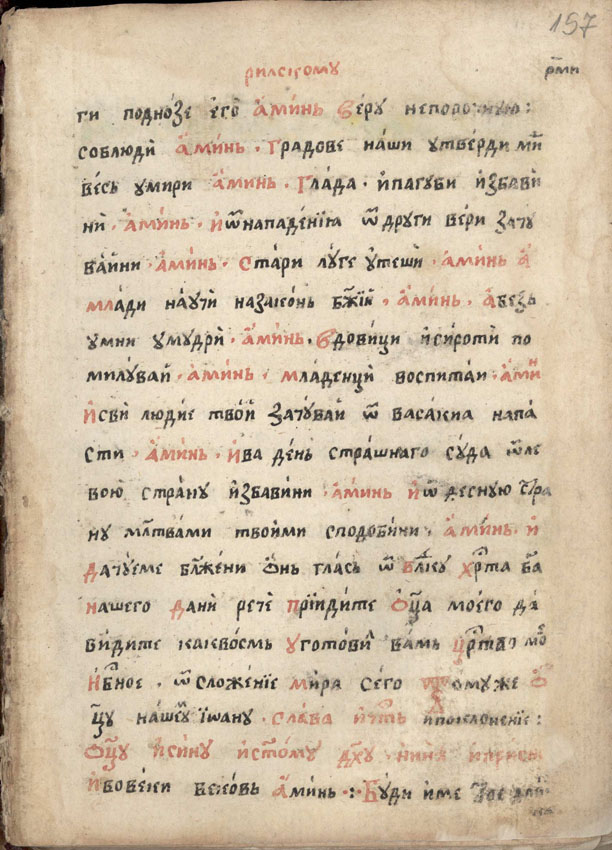 157
рилскому
рми
ги поднозе его Аминь веру непорочную :
соблюди Аминь · Градове наши утверди ми
весь умири Аминь · Глада · ипагуби избави
ни · Аминь · Иѿнападенїѧ ѿ други вери зачу
вайни Аминь · Стари луге утеши · аминь А
млади научи назаконь бж҃їй · Аминь · Авезь
умни умудри · Аминь · Вдовици исироти по
милувай · Аминь · младенци воспитаи · Ами
Исви людїе твой зачувай ѿ васакиа напа
сти · Аминь · Ива день страшнаго суда ѿле
вою страну избавини · Аминь иѿ десную
ну мл҃твами твоими сподобини · Аминь · и
дачуеме бл҃жени онь глась ѿ вл҃ку хр҃та ба
нашего дани рече прїидите Оц҃а моего да
видите какво уготови вамь цр҃тво
Нб҃ное · ѿ сложенїе мира сего томуже О
ц҃у нашему їѡану · Слава ичть ипоклоненїе :
Оц҃у исину ист҃ому дх҃у · нинѧ иприсно
Ивовеки вековь Аминь : Буди име